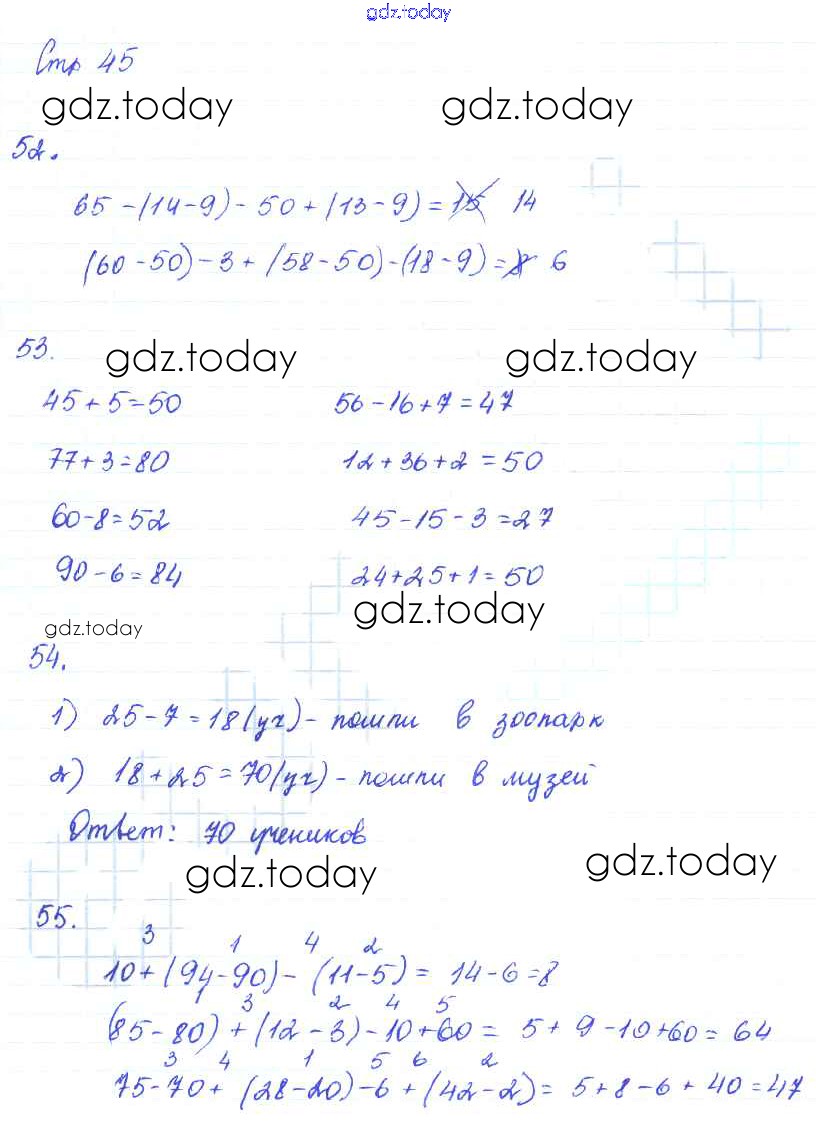 gdz.today
Стр 45
gdz.today gdz.today
52.
65-(14-9)-50+(13-9)=15 14
(60-50)-3+(58-50)-(18-9)=8 6
53.
gdz.today gdz.today
45+5=50 56-16+7=47
77+3=80 12+36+2=50
60-8=52 45-15-3=27
90-6=84 24+25+1=50
gdz.today gdz.today
54.
1) 25-7=18(уч)- пошли в зоопарк
2) 18+25=70(уч)- пошли в музей
Ответ: 70 учеников
gdz.today gdz.today
55.
3 1 4 2
10+(94-90)-(11-5)= 14-6=8
1 3 2 4 5
(85-80)+(12-3)-10+60= 5+9-10+60=64
3 4 1 5 6 2
75-70+(28-20)-6+(42-2)= 5+8-6+40=47